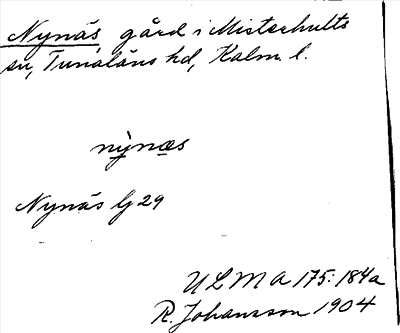 Nynäs gård i Misterhults
sn, Tunaläns hd, Kalm. l.
nỳnæs
Nynäs G 29
ULMA 175:184a
R. Johansson 1904